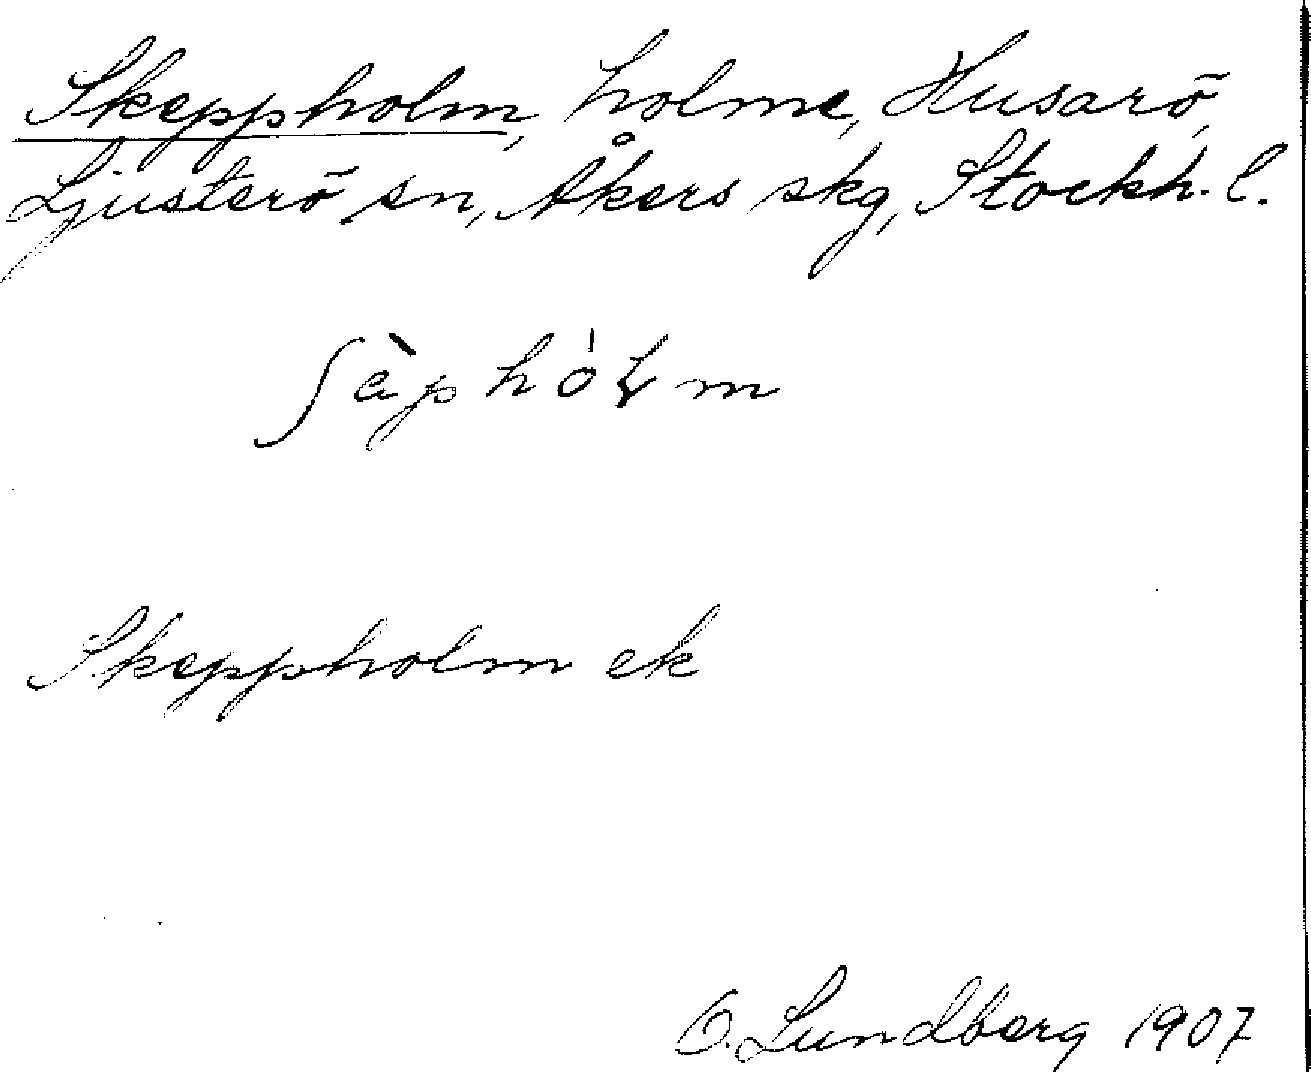 Skeppholm, holme, Husarö,
Ljusterö sn, Åkers skg, Stockh. l.
ʃèphóɫm
Skeppholm ek
O. Lundberg 1907